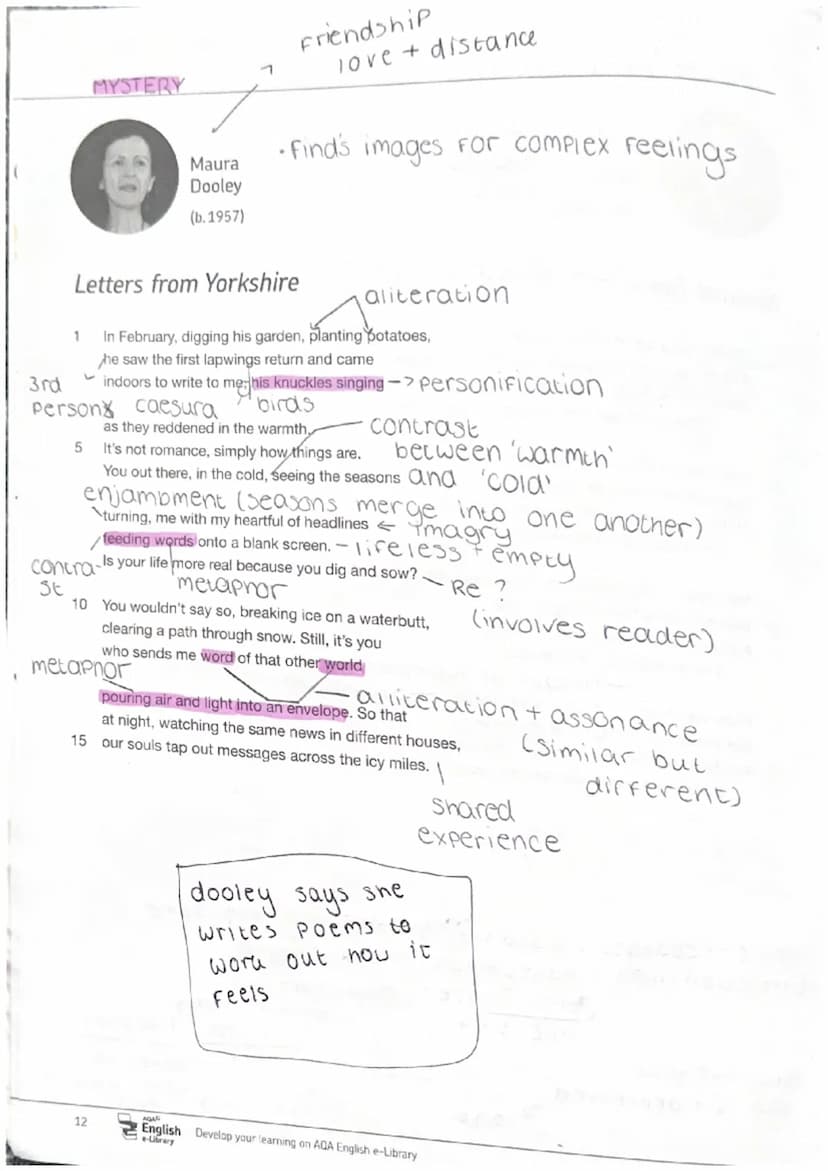 friendship
love + distance
MYSTERY
• find's images for complex feelings
Maura
Dooley
(b. 1957)
Letters from Yorkshire
aliteration
1 In February, digging his garden, planting potatoes,
he saw the first lapwings return and came
3rd indoors to write to me, his knuckles singing -> personification
person caesura birds
as they reddened in the warmth. contrast
5 It's not romance, simply how things are. between 'warmth'
You out there, in the cold, seeing the seasons and 'cold'
enjambment (seasons merge into one another)
turning, me with my heartful of headlines ← imagry
feeding words onto a blank screen. – lifeless + empty
contra- Is your life more real because you dig and sow? Re ?
st metaphor
10 You wouldn't say so, breaking ice on a waterbutt, (involves reader)
clearing a path through snow. Still, it's you
who sends me word of that other world
metaphor
pouring air and light into an envelope. So that alliteration + assonance
at night, watching the same news in different houses, (similar but
15 our souls tap out messages across the icy miles. different)
shared
experience
dooley says she
writes poems to
work out how it
feels
12 AQA English e-Library Develop your learning on AQA English e-Library